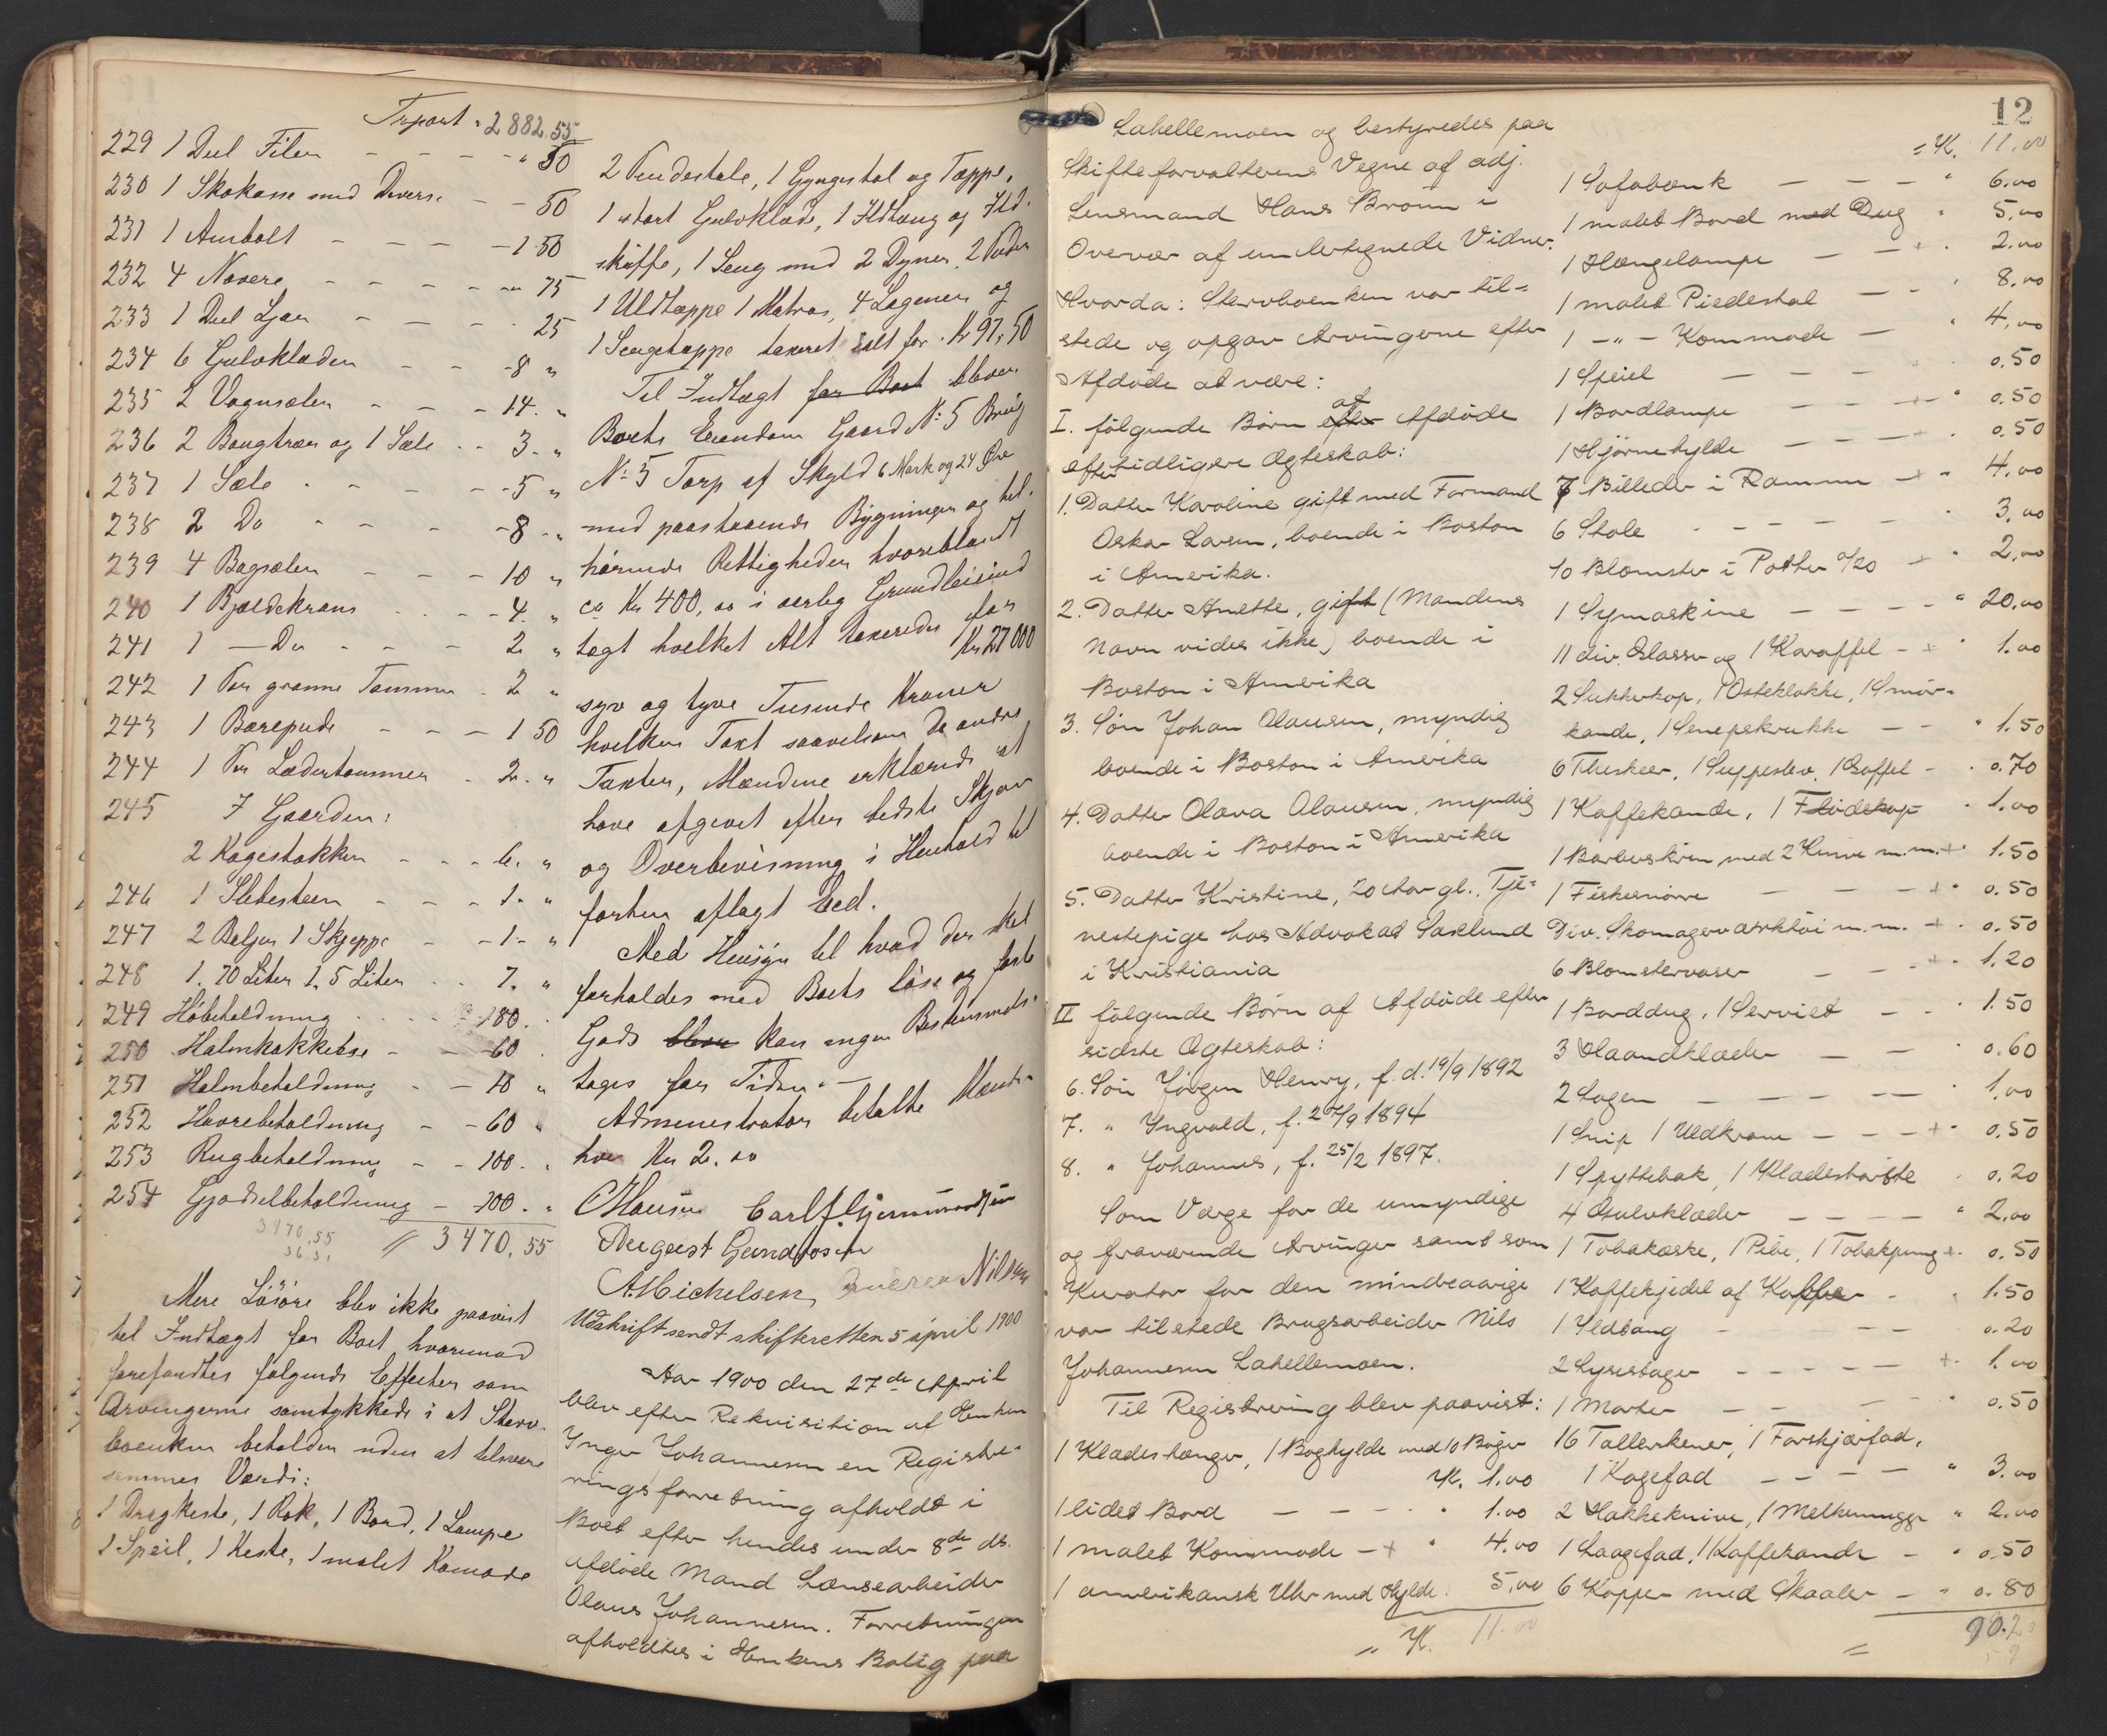 Trport = 2882.55
229 1 Deel Filer - - - - " 50
230 1 Skokasse med Diverse - - 50
231 1 Ambolt - - - - 1.50
232 4 Navere - - - - - 75
233 1 Deel Ljaer - - - - 25
234 6 Gulvklæder - - - 8 "
235 2 Vognsæler - - - 14. "
236 2 Bougtræer og 1 Sæle - - 3. "
237 1 Sæle - - - - 5 "
238 2 Do - - - - 8 - "
239 4 Bogsæler - - - 10 "
240 1 Bjeldekrans - - - - 4. "
241 1 — Do - - - - 2 "
242 1 Par grønne Tømmer - 2 "
243 1 Bærepude - - - 1 50
244 1 Par Lædertømmer - 2. "
245 I Gaarden:
2 Kagestokker - - - 6. "
246 1 Slibesteen - - - 1. "
247 2 Beljer 1 Skjeppe - - 1- "
248 1. 10 Liter 1. 5 Liter - - 7. "
249 Høbeholdning - - - 180.
250 Halmhakkelse - - - 60 .
251 Halmbeholdning - - 10 "
252 Havrebeholdning - - 60 "
253 Rugbeholdning - - 100. "
254 Gjødselbeholdning - 100. "
3470,55
3470,55
Mere Løsøre blev ikke paavist
til Indtægt for Boet hvorimod
forefandtes følgende Effecter som
Arvingerne samtykkede i at Sterv-
boenken beholder uden at tilsvare
sammes Værdi:
1 Dragkiste, 1 Rok, 1 Bord, 1 Lampe
1 Speil, 1 Kiste, 1 malet Komode
2 Pindestole, 1 Gyngestol og Tæppe,
1 stort Gulvklæde, 1 Ildtang og Ild-
skuffe, 1 Seng med 2 Dyner, 2 Puder
1 Uldtæppe 1 Matras, 4 Lagener og
1 Sengetæppe taxeret ialt for Kr 97,50
Til Indtægt for Boet blev
Boets Eiendom Gaard No 5 Brug
No 5 Torp af Skyld 6 Mark og 24 Øre
med paastaaende Bygninger og til-
hørende Rettigheder hvoriblandt
ca Kr 400,00 i aarlig Grundleieind
tægt hvilket Alt taxeredes for
Kr 27000
syv og tyve Tusinde Kroner
hvilken Taxt saavelsom de andre
Taxter, Mændene erklærede at
have afgivet efter bedste Skjøn
og Overbevisning i Henhold til
forhen aflagt Eed.
Med Hensyn til hvad der skal
forholdes med Boets løse og faste
Gods blev kan ingen Bestemmelse
tages for Tiden. —
Administrator betalte Mænd-
hver Kr 2.00
CHansen Carl J. Gjermundsen
August Gundrosen
AMichelsen, Andreas Nilsen
Udskrift sendt skifteretten 5 april 1900
Aar 1900 den 27de April
blev efter Rekvisition af Enken
Inger Johannesen en Registre-
ringsforretning afholdt i
Boet efter hendes under 8de ds.
afdøde Mand Lænsearbeider
Olaus Johannesen. Forretningen
afholdtes i Enkens Bolig paa
12
Lahellemoen og bestyredes paa
Skifteforvalterens Vegne af adj.
Lensmand Hans Bruun i
Overvær af undertegnede Vidner.
Hvorda: Stervboenken var til-
stede og opgav Arvingerne efter
Afdøde at være:
I. følgende Børn efter af Afdøde
efter tidligere Ægteskab:
1. Datter Karoline gift med Formand
Oskar Larsen, boende i Boston
i Amerika.
2. Datter Anette, gift (Mandens
Navn vides ikke) boende i
Boston i Amerika
3. Søn Johan Olausen, myndig
boende i Boston i Amerika
4. Datter Olava Olausen, myndig
boende i Boston i Amerika
5. Datter Kristine, 20 Aar gl., Tje-
nestepige hos Advokat Saxlund
i Kristiania
II følgende Børn af Afdøde efter
sidste Ægteskab:
6. Søn Jørgen Henry, f. d. 19/9 1892
7. " Ingvald, f. 27/9 1894
8. " Johannes, f. 25/2 1897.
Som Værge for de umyndige
og fraværende Arvinger samt som
Kurator for den mindreaarige
var tilstede Brugsarbeider Nils
Johannesen Lahellemoen.
Til Registrering blev paavist:
1 Klædeshænger, 1 Boghylde med 10 Bøger
Kr. 1.00
1 lidet Bord - - - - " 1.00
1 malet Kommode - + " 4.00
1 amerikansk Uhr med Hylde: 5,00
= Kr. 11.00
= Kr. 11.00
1 Sofabænk - - - " 6.00
1 malet Bord med Dug " 5.00
1 Hængelampe - - + . 2.00
1 malet Piedestal - - ' 8.00
1 -"- Kommode - " 4,00
1 Speil - - - - 0.50
1 Bordlampe - - - + " 0.50
1 Hjørnehylde - - - - + . 0.50
7 Billeder i Ramme - + " 4.00
6 Stole - - - - - . 3.00
10 Blomster i Potter 0/20 - + " 2,00
1 Symaskine - - - - " 20.00
11 div. Glasse og 1 Karaffel - + " 1.00
2 Sukkerkop, 1 Osteklokke, 1 Smør-
kande, 1 Senepskrukke - - " 1.50
6 Theskeer, 1 Suppeslev, 1 Gaffel - . 0.70
1 Kaffekande, 1 Flødekop " 1.00
1 Barberskrin med 2 Knive m.m. + . 1.50
1 Fiskesnøre - - - + . 0.50
Div. Skomagerværktøi m.m. - + . 0.50
6 Blomstervaser - - - + . 1.20
1 Borddug, 1 Serviet - - . 1.50
3 Haandklæder - - . 0.60
2 Lagen - - - - - ' 1,00
1 Snip 1 Uldkrave - - - + . 0.50
1 Spyttebak, 1 Klædesbørste . 0.20
4 Gulvklæder - - - - " 2,00
1 Tobakæske, 1 Pibe, 1 Tobakpung + . 0.50
1 Kaffekjedel af Kobber - " 1.50
1 Ildtang - - - 0.20
2 Lysestager - - - - - + . 1.00
1 Morter - - - " 0.50
16 Tallerkener, 1 Forskjærfad,
1 Kagefad - - - - " 3.00
2 Hakkeknive, 1 Melkemugge " 2.00
1 Laagefad, 1 Kaffekande - " 0.50
6 Kopper med Skaaler - " 0.80
= 90.20